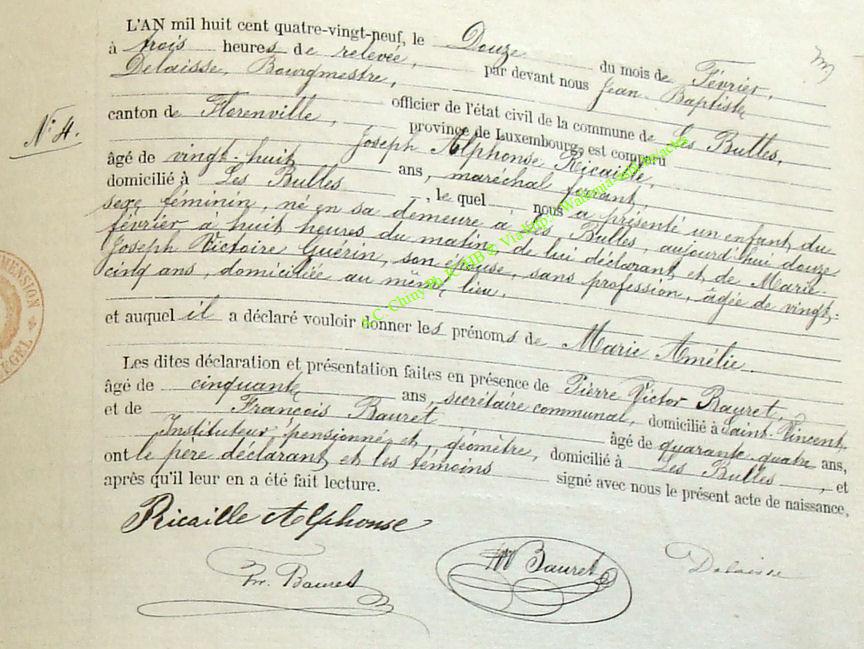 L'AN mil huit cent quatre-vingt-neuf, le Douze du mois de Février,
à trois heures de relevée, par devant nous Jean-Baptiste
Delaisse, Bourgmestre,
officier de l'état civil de la commune de Les Bulles,
N° 4.
canton de Florenville, province de Luxembourg, est comparu
Joseph Alphonse Ricaille,
âgé de vingt-huit ans, maréchal ferrant,
domicilié à Les Bulles, le quel nous a présenté un enfant du
sexe féminin, né en sa demeure à Les Bulles, aujourd'hui douze
février à huit heures du matin, de lui déclarant et de Marie
Joseph Victoire Guérin, son épouse, sans profession, âgée de vingt-
cinq ans, domiciliée au même lieu,
et auquel il a déclaré vouloir donner les prénoms de Marie Amélie.
Les dites déclaration et présentation faites en présence de Pierre Victor Bauret,
âgé de cinquante ans, secrétaire communal, domicilié à Saint-Vincent
et de François Bauret âgé de quarante-quatre ans,
Instituteur pensionné et géomètre, domicilié à Les Bulles, et
ont le père déclarant et les témoins signé avec nous le présent acte de naissance,
après qu'il leur en a été fait lecture.
Ricaille Alphonse
Fr. Bauret
Bauret
Delaisse